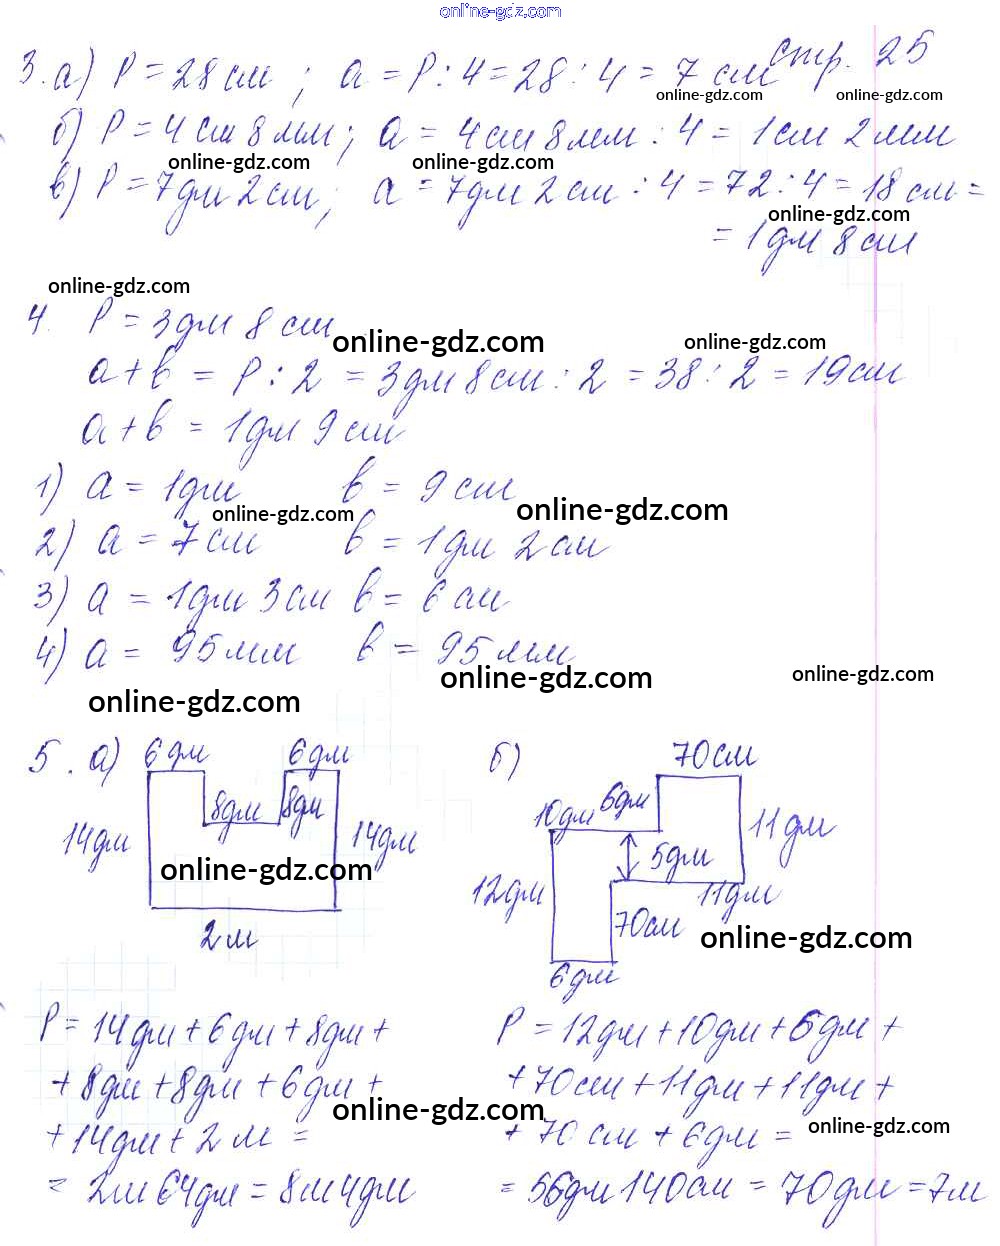 online-gdz.com
стр. 25
3. а) P = 28 см ; a = P : 4 = 28 : 4 = 7 см
online-gdz.com online-gdz.com
б) P = 4 см 8 мм ; a = 4 см 8 мм : 4 = 1 см 2 мм
online-gdz.com online-gdz.com
в) P = 7 дм 2 см ; a = 7 дм 2 см : 4 = 72 : 4 = 18 см =
online-gdz.com
= 1 дм 8 см
online-gdz.com
4. P = 3 дм 8 см
online-gdz.com online-gdz.com
a + b = P : 2 = 3 дм 8 см : 2 = 38 : 2 = 19 см
a + b = 1 дм 9 см
1) a = 1 дм b = 9 см
online-gdz.com online-gdz.com
2) a = 7 см b = 1 дм 2 см
3) a = 1 дм 3 см b = 6 см
4) a = 95 мм b = 95 мм
online-gdz.com online-gdz.com
online-gdz.com
5. а) 6 дм 6 дм
8 дм 8 дм
14 дм 14 дм
online-gdz.com
2 м
б) 70 см
10 дм 6 дм
11 дм
5 дм
12 дм 11 дм
70 см
online-gdz.com
6 дм
P = 14 дм + 6 дм + 8 дм +
+ 8 дм + 8 дм + 6 дм +
online-gdz.com
+ 14 дм + 2 м =
= 2 м 64 дм = 8 м 4 дм
P = 12 дм + 10 дм + 6 дм +
+ 70 см + 11 дм + 11 дм +
online-gdz.com
+ 70 см + 6 дм =
= 56 дм 140 см = 70 дм = 7 м